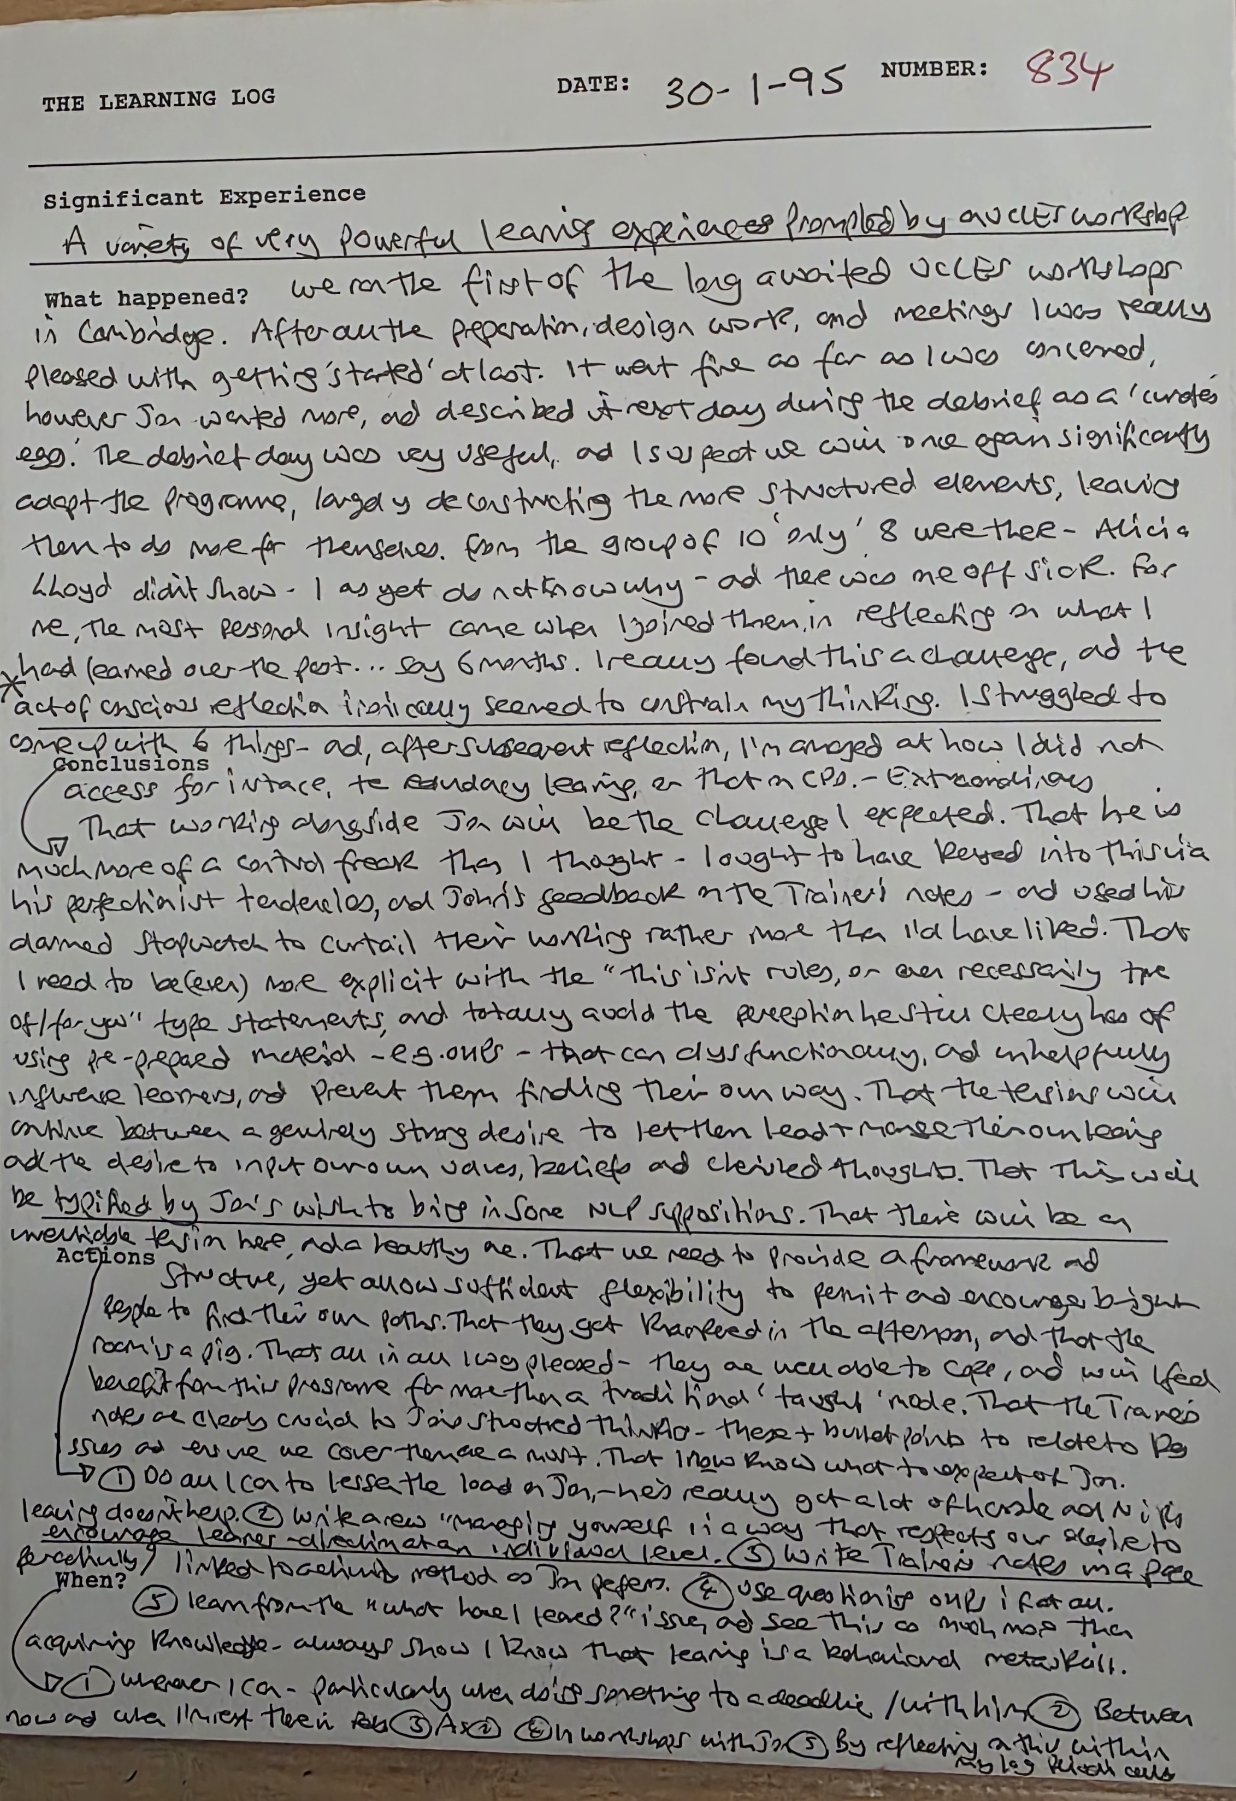 THE LEARNING LOG DATE: 30-1-95 NUMBER: 834
Significant Experience
A variety of very powerful learning experiences prompted by a UCLES workshop
What happened? we ran the first of the long awaited UCLES workshops
in Cambridge. After all the preparation, design work, and meetings I was really
pleased with getting 'started' at last. It went fine as far as I was concerned,
however Jon wanted more, and described it next day during the debrief as a 'curate's
egg.' The debrief day was very useful, and I suspect we will once again significantly
adapt the programme, largely deconstructing the more structured elements, leaving
them to do more for themselves. From the group of 10 'only' 8 were there - Alicia
Lloyd didn't show - I as yet do not know why - and there was one off sick. For
me, the most personal insight came when I joined them in reflecting on what I
*had learned over the past... say 6 months. I really found this a challenge, and the
act of conscious reflection ironically seemed to constrain my thinking. I struggled to
come up with 6 things - and, after subsequent reflection, I'm amazed at how I did not
Conclusions
access for instance, the redundancy learning, or that on CPD. - Extraordinary
That working alongside Jon will be the challenge I expected. That he is
much more of a control freak than I thought - I ought to have keyed into this via
his perfectionist tendencies, and John's feedback on the Trainer's notes - and used his
damned stopwatch to curtail their working rather more than I'd have liked. That
I need to be (even) more explicit with the "this isn't rules, or even necessarily true
of/for you" type statements, and totally avoid the perception he still clearly has of
using pre-prepared material - e.g. ours - that can dysfunctionally, and unhelpfully
influence learners, and prevent them finding their own way. That the tensions will
continue between a genuinely strong desire to let them lead + manage their own learning
and the desire to input our own values, beliefs and cherished thoughts. That this will
be typified by Jon's wish to bring in some NLP suppositions. That there will be an
inevitable tension here, and a healthy one. That we need to provide a framework and
Actions
structure, yet allow sufficient flexibility to permit and encourage bright
people to find their own paths. That they get knackered in the afternoon, and that the
room is a pig. That all in all I was pleased - they are well able to cope, and will I feel
benefit from this programme far more than a traditional 'taught' mode. That the Trainer's
notes are clearly crucial to Jon's structured thinking - these + bullet points to relate to key
issues and ensure we cover them are a must. That I now know what to expect of Jon.
① Do all I can to lessen the load on Jon, - he's really got a lot of hassle and
leaving doesn't help. ② Write a new "Managing yourself" in a way that respects our desire to
encourage learner-direction at an individual level. ③ Write Trainer's notes in a
linked to method as Jon prefers. ④ Use questioning ours if at all.
When?
⑤ learn from the "what have I learned?" issue, and see this as much more than
acquiring knowledge - always show I know that learning is a behavioural metaskill.
① whenever I can - particularly when doing something to a deadline / with him ② Between
now and when I next ③ As ② ④ In workshops with Jon ⑤ By reflecting on this within
my log